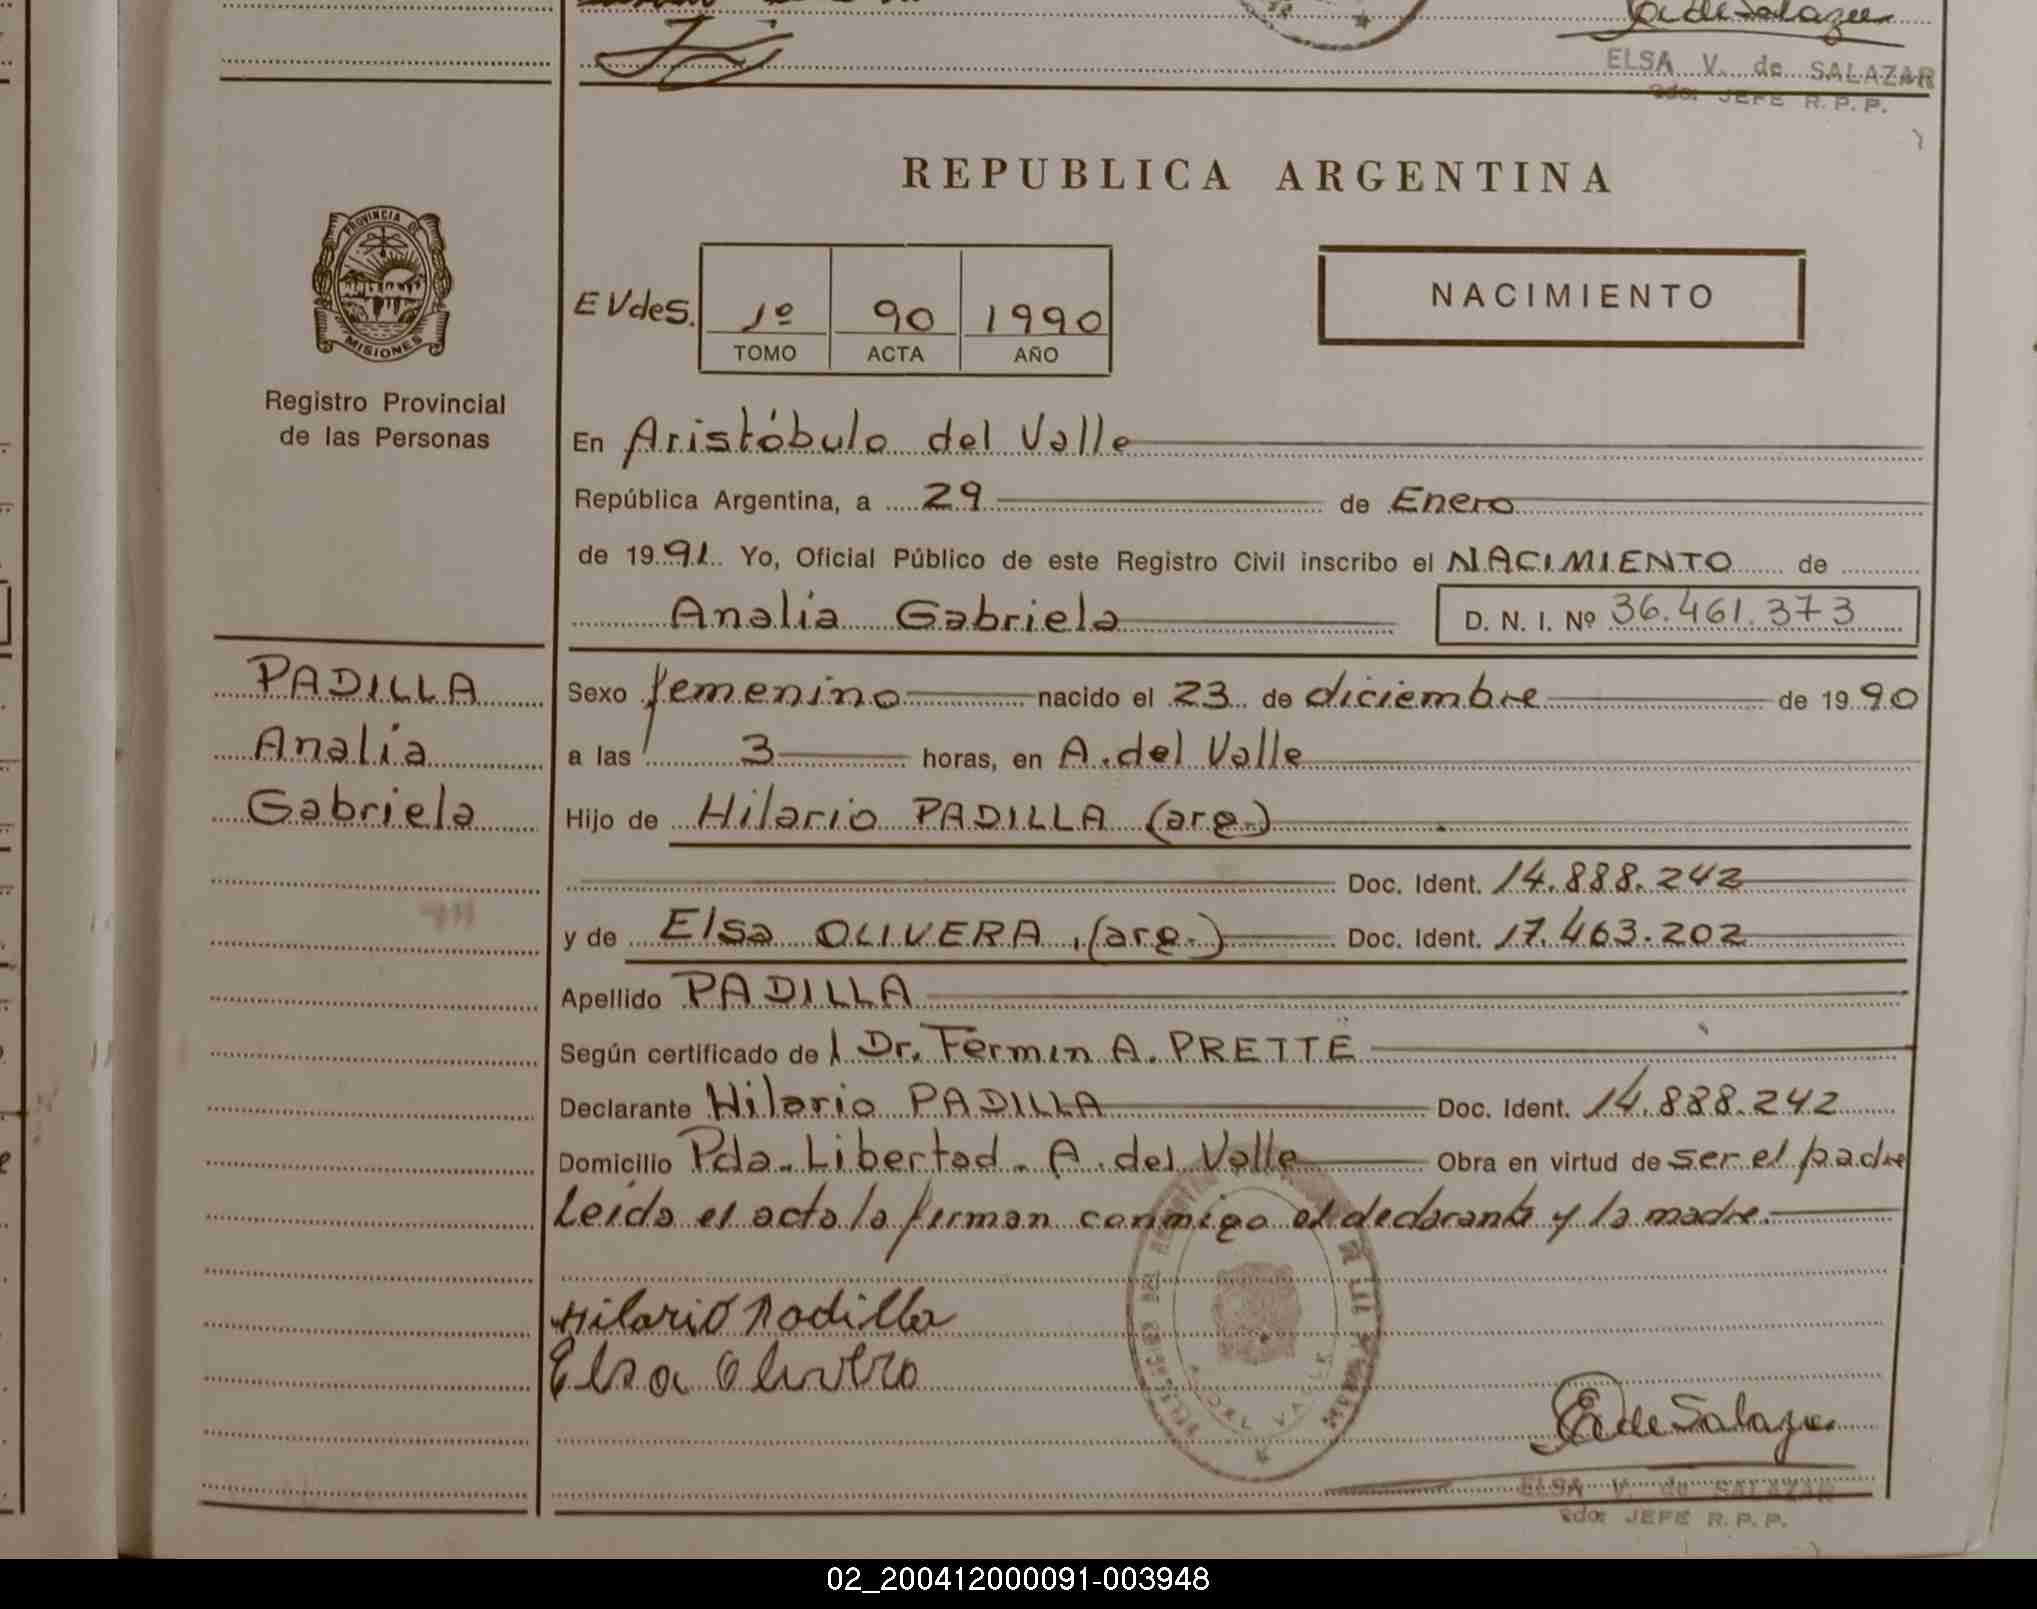 E de Salazar
ELSA V. de SALAZAR
2do. JEFE R.P.P.
REPUBLICA ARGENTINA
PROVINCIA DE
MISIONES
Registro Provincial
de las Personas
EVdes. 1º 90 1990
TOMO ACTA AÑO
NACIMIENTO
En Aristóbulo del Valle
República Argentina, a 29 de Enero
de 1991 Yo, Oficial Público de este Registro Civil inscribo el NACIMIENTO de
Analia Gabriela D. N. I. Nº 36.461.373
PADILLA
Analia
Gabriela
Sexo femenino nacido el 23 de diciembre de 1990
a las 3 horas, en A. del Valle
Hijo de Hilario PADILLA (arg.)
Doc. Ident. 14.888.242
y de Elsa OLIVERA (arg.) Doc. Ident. 17.463.202
Apellido PADILLA
Según certificado del Dr. Fermin A. PRETTE
Declarante Hilario PADILLA Doc. Ident. 14.888.242
Domicilio Pda. Libertad. A. del Valle Obra en virtud de ser el padre
Leida el acta la firman conmigo el declarante y la madre.
Hilario Padilla
Elsa Olivera
A. DEL VALLE
E de Salazar
ELSA V. de SALAZAR
2do. JEFE R.P.P.
02_200412000091-003948